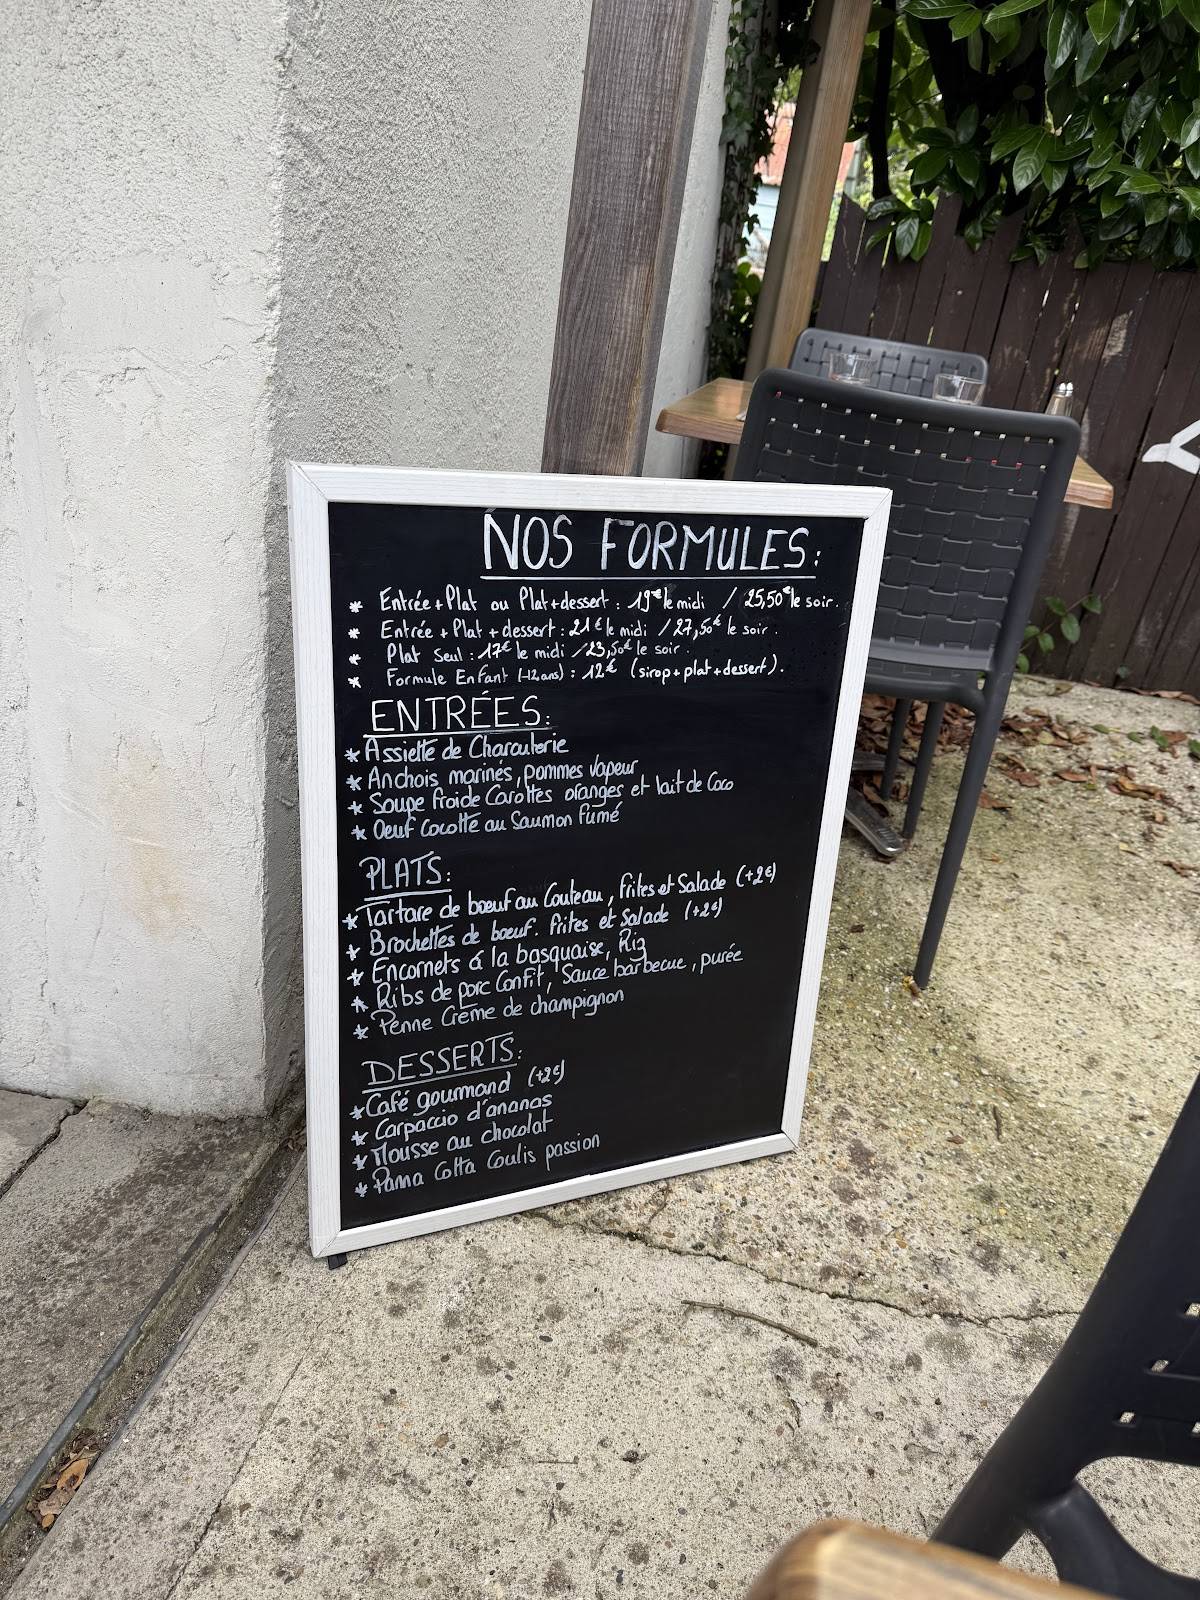 NOS FORMULES:
* Entrée + Plat ou Plat + dessert : 19€ le midi / 25,50€ le soir.
* Entrée + Plat + dessert : 21€ le midi / 27,50€ le soir.
* Plat Seul : 17€ le midi / 23,50€ le soir.
* Formule Enfant (-12ans) : 12€ (sirop + plat + dessert).
ENTRÉES:
* Assiette de Charcuterie
* Anchois marinés, pommes vapeur
* Soupe froide Carottes oranges et lait de Coco
* Oeuf cocotte au Saumon fumé
PLATS:
* Tartare de boeuf au Couteau, frites et Salade (+2€)
* Brochettes de boeuf. frites et Salade (+2€)
* Encornets à la basquaise, Riz
* Ribs de porc Confit, Sauce barbecue, purée
* Penne Crème de champignon
DESSERTS:
* Café gourmand (+2€)
* Carpaccio d'ananas
* Mousse au chocolat
* Panna Cotta Coulis passion